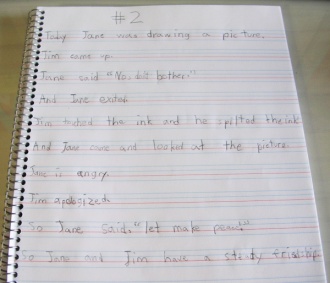 #2
Toby Jane was drawing a picture.
Jim came up.
Jane said "No, don't bother."
And Jane exited
Jim touched the ink and he spilted the ink
And Jane came and lookat at the picture
Jane is angry.
Jim apologized.
So Jane said, "let make peace."
So Jane and Jim have a steady friendship.